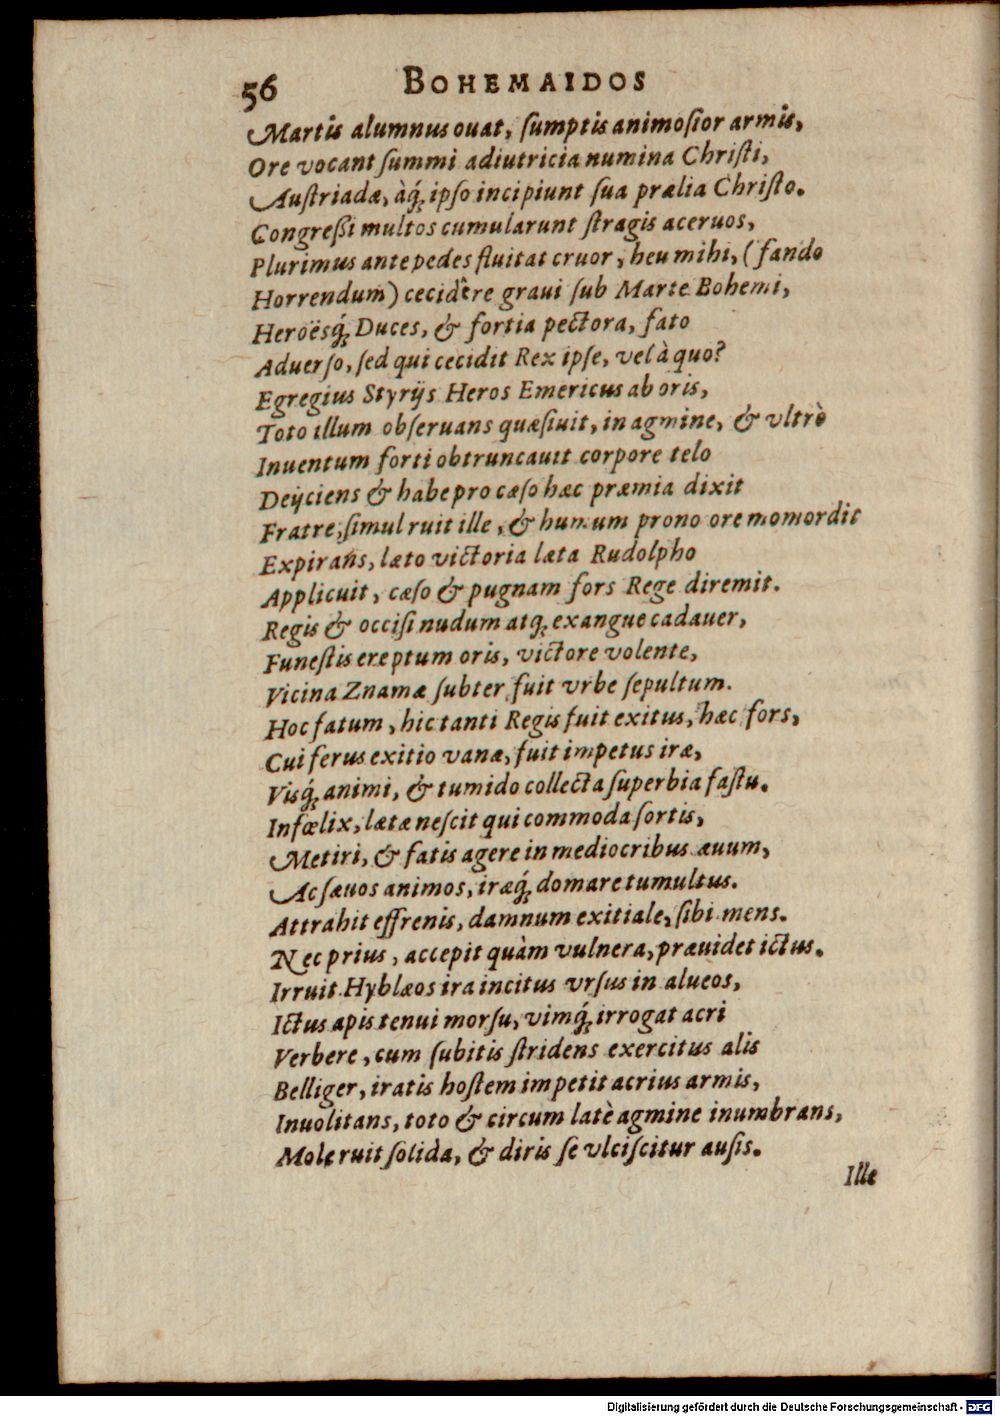 56 BOHEMAIDOS
Martis alumnus ouat, ſumptis animoſior armis,
Ore vocant ſummi adiutricia numina Chriſti,
Auſtriadæ, àq́; ipſo incipiunt ſua prælia Chriſto.
Congreßi multos cumularunt ſtragis aceruos,
Plurimus ante pedes fluitat cruor, heu mihi, (fando
Horrendum) cecidêre graui ſub Marte Bohemi,
Heroësq́; Duces, & fortia pectora, fato
Aduerſo, ſed qui cecidit Rex ipſe, vel à quo?
Egregius Styrijs Heros Emericus ab oris,
Toto illum obſeruans quæſiuit, in agmine, & vltrò
Inuentum forti obtruncauit corpore telo
Deijciens & habe pro cæſo hæc præmia dixit
Fratre, ſimul ruit ille, & humum prono ore momordit
Expirans, læto victoria læta Rudolpho
Applicuit, cæſo & pugnam fors Rege diremit.
Regis & occiſi nudum atq; exangue cadauer,
Funeſtis ereptum oris, victore volente,
Vicina Znamæ ſubter fuit vrbe ſepultum.
Hoc fatum, hic tanti Regis fuit exitus, hæc fors,
Cui ferus exitio vanæ, fuit impetus iræ,
Visq́; animi, & tumido collecta ſuperbia faſtu.
Infœlix, lætæ neſcit qui commoda ſortis,
Metiri, & fatis agere in mediocribus æuum,
Ac ſæuos animos, iræq́; domare tumultus.
Attrahit effrenis, damnum exitiale, ſibi mens.
Nec prius, accepit quàm vulnera, præuidet ictus.
Irruit Hyblæos ira incitus vrſus in alueos,
Ictus apis tenui morſu, vimq́; irrogat acri
Verbere, cum ſubitis ſtridens exercitus alis
Belliger, iratis hoſtem impetit acrius armis,
Inuolitans, toto & circum latè agmine inumbrans,
Mole ruit ſolida, & diris ſe vlciſcitur auſis.
Ille
Digitalisierung gefördert durch die Deutsche Forschungsgemeinschaft - DFG